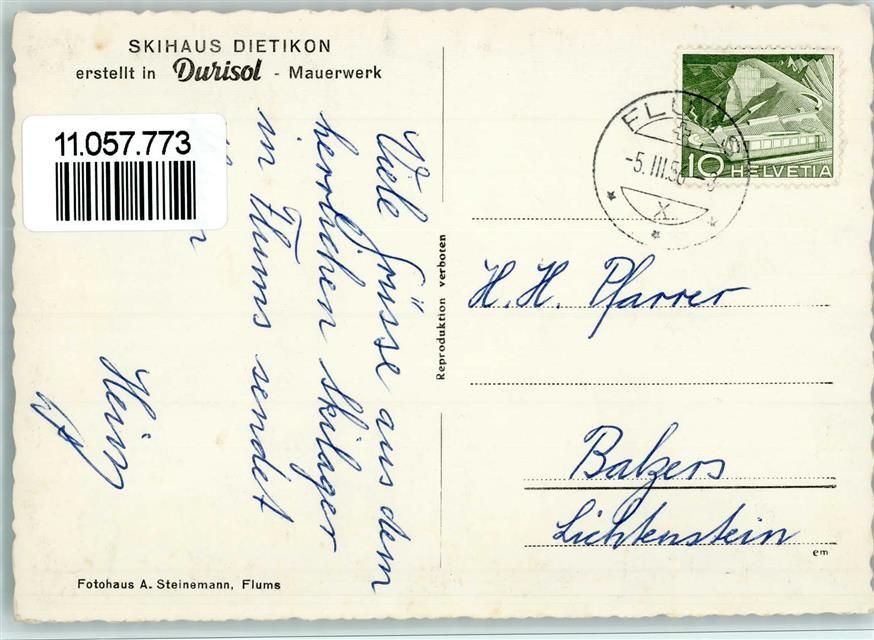 SKIHAUS DIETIKON
erstellt in Durisol - Mauerwerk
11.057.773
Viele Grüsse aus dem
herrlichen Skilager
in Flums sendet
Heinz
Reproduktion verboten
FLUMS
-5.III.56
X
10 HELVETIA
H. H. Pfarrer
Balzers
Lichtenstein
em
Fotohaus A. Steinemann, Flums